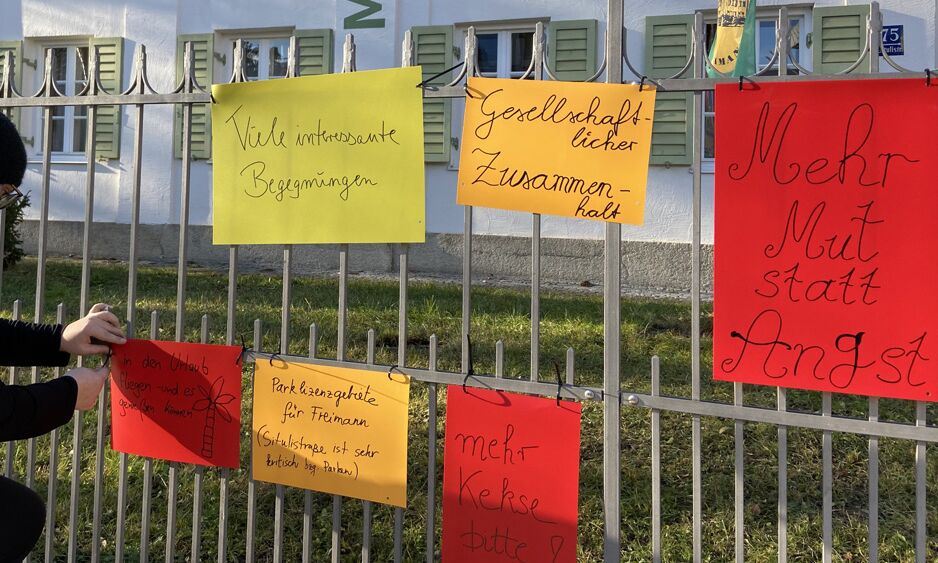 M
75
Viele interessante
Begegnungen
Gesellschaft-
licher
Zusammen-
halt
Mehr
Mut
statt
Angst
in den Urlaub
fliegen - und es
genießen können
Parklizenzgebiete
für Freimann
(Situlistraße ist sehr
kritisch bzg. Parken)
mehr
Kekse
bitte!